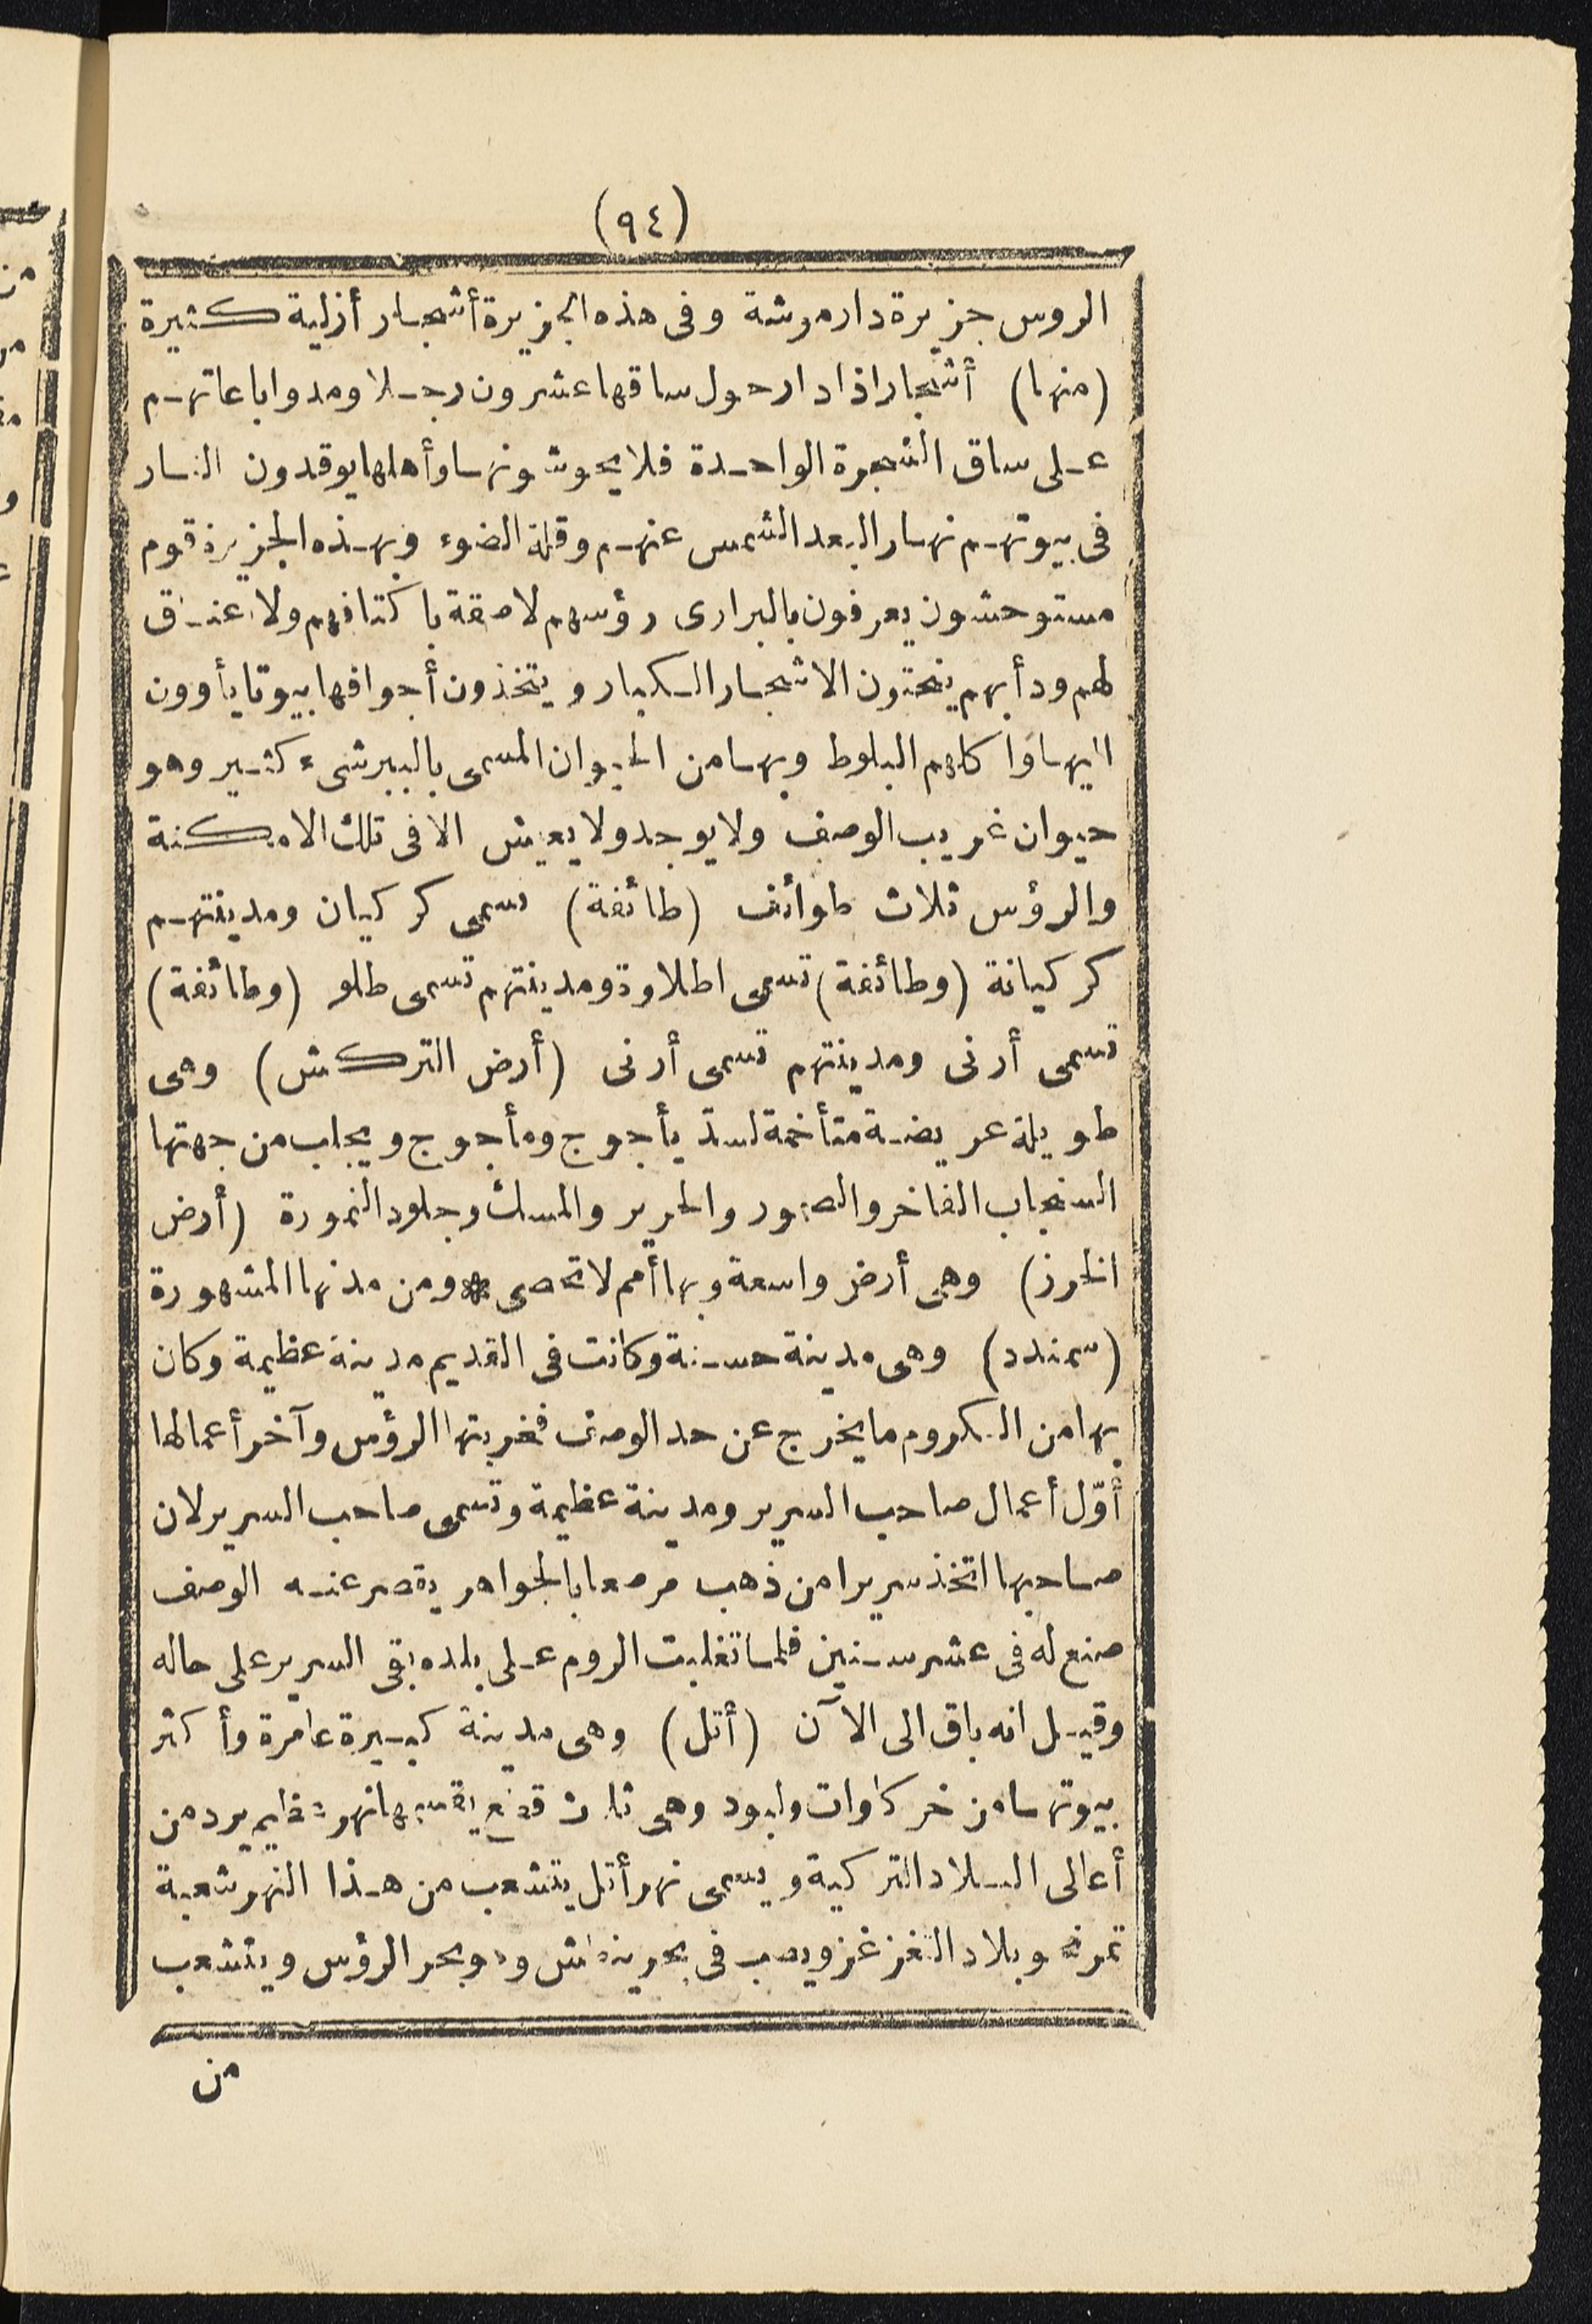 (٩٤)
الروس جزيرة دارموشة وفى هذه الجزيرة أشجار أزلية كثيرة
(منها) أشجار اذا دار حول ساقها عشرون رجلا ومدوا باعاتهم
على ساق الشجرة الواحدة فلا يحوشونها وأهلها يوقدون النار
فى بيوتهم نهارا لبعد الشمس عنهم وقلة الضوء وبهذه الجزيرة قوم
مستوحشون يعرفون بالبرارى رؤسهم لاصقة باكتافهم ولا عنق
لهم ودأبهم ينحتون الاشجار الكبار ويتخذون أجوافها بيوتا يأوون
اليها وأكلهم البلوط وبها من الحيوان المسمى بالببر شىء كثير وهو
حيوان غريب الوصف ولا يوجد ولا يعيش الا فى تلك الامكنة
والرؤس ثلاث طوائف (طائفة) تسمى كركيان ومدينتهم
كركيانة (وطائفة) تسمى اطلاوة ومدينتهم تسمى طلو (وطائفة)
تسمى أرنى ومدينتهم تسمى أرنى (أرض التركش) وهى
طويلة عريضة متأخمة لسدّ يأجوج ومأجوج ويجلب من جهتها
السنجاب الفاخر والسمور والحرير والمسك وجلود النمورة (أرض
الخزر) وهى أرض واسعة وبها أمم لا تحصى * ومن مدنها المشهورة
(سمندد) وهى مدينة حسنة وكانت فى القديم مدينة عظيمة وكان
بها من الكروم ما يخرج عن حد الوصف فخربتها الرؤس وآخر أعمالها
أوّل أعمال صاحب السرير ومدينة عظيمة وتسمى صاحب السرير لان
صاحبها اتخذ سريرا من ذهب مرصعا بالجواهر يقصر عنه الوصف
صنع له فى عشر سنين فلما تغلبت الروم على بلده بقى السرير على حاله
وقيل انه باق الى الآن (أتل) وهى مدينة كبيرة عامرة وأكثر
بيوتها من خركاوات ولبود وهى ثلاث قطع يقسمها نهر عظيم يرد من
أعالى البلاد التركية ويسمى نهر أتل يتشعب من هذا النهر شعبة
تمر نحو بلاد التغزغز ويصب فى بحر ينطش وهو بحر الرؤس ويتشعب
من